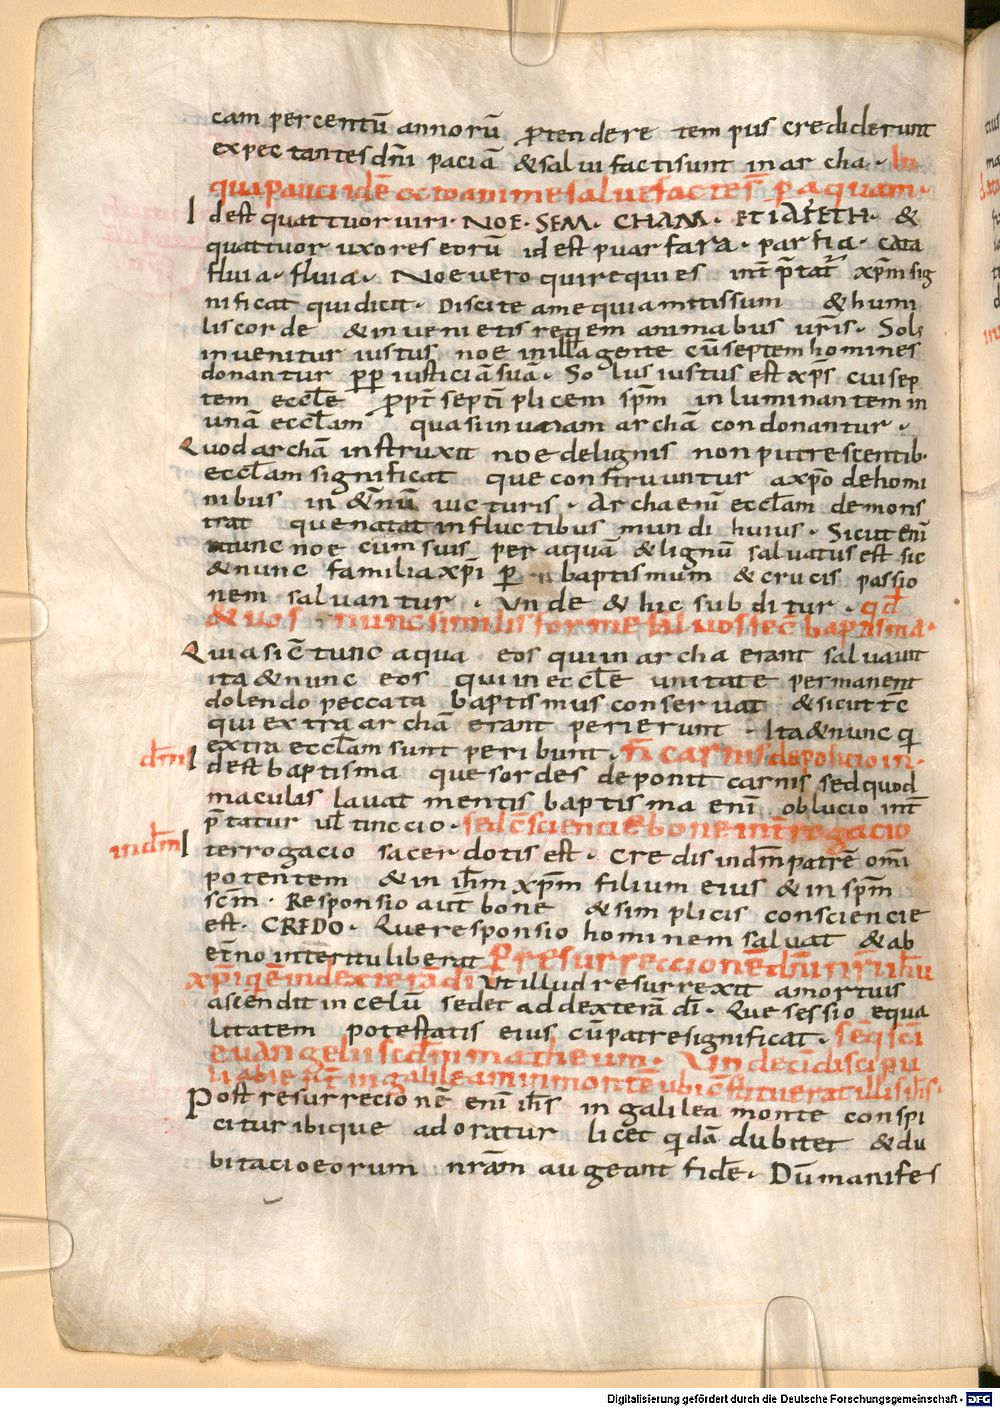 cam per centū annorū ꝓtendere tempus crediderunt
expectantes dn̄i paciā & salui facti sunt in archa · In
qua pauci idē octo anime salue facte s̄ p aquam ·
Id est quattuor uiri · NOE · SEM · CHAM · ET IAFETH · &
quattuor uxores eorū id est puarfara · parfia · cata
fluia · fluia · Noe uero qui requies int̄p̄tat᷑ xp̄m sig
nificat qui dicit · Discite a me quia mitis sum & humi
lis corde & inuenietis reqem animabus ur̄is · Sols
inuenitur iustus noe in illa gente cū septem homines
donantur ꝓp iusticiā suā · Solus iustus est xp̄s cui sep
tem eccl̄e ꝓpt̄ septīplicem sp̄m inluminantem in
unā eccl̄am quasi in unam archā condonantur ·
Quod archā instruxit noe de lignis non putrescentib·
eccl̄am significat que construuntur a xp̄o de homi
nibus in &̄nū uicturis · Archa enī eccl̄am demons
trat que natat in fluctibus mundi huius · Sicut enī
tunc noe cum suis per aquā & lignū saluatus est sic
& nunc familia xp̄i p baptismum & crucis passio
nem saluantur · Unde & hic subditur · qd̄
& uos nunc similis forme saluos fec̄ baptisma ·
Quia sic̄ tunc aqua eos qui in archa erant saluauit
ita & nunc eos qui in eccl̄e unitate permanent
dolendo peccata baptismus conseruat & sicut tc̄
qui extra archā erant perierunt · Ita & nunc q̄
extra eccl̄am sunt peribunt · n̄ carnis deposicio in ·
dm̄ Id est baptisma que sordes deponit carnis sed quod
maculas lauat mentis baptisma enī oblucio int̄
p̄tatur ul̄ tinccio · sed c̄sciencie bone int̄rogacio
in dm̄ Interrogacio sacerdotis est · Credis in dm̄ patrē omī
potentem & in ih̄m xp̄m filium eius & in sp̄m
sc̄m · Responsio aut bone & simplicis consciencie
est · CREDO · Que responsio hominem saluat & ab
et̄no interitu liberat P resurreccionē dn̄i nr̄i ih̄u
xp̄i q̄ ē in dexterā di Ut illud resurrexit a mortuis
ascendit in celū sedet ad dexterā dī · Que sessio equa
litatem potestatis eius cū patre significat · seq̄ sc̄i
euangelii scd̄m matheum · Undecī discipu
li abier̄t in galileam in montē ubi c̄stituerat illis ih̄s ·
Post resurreccionē enī ih̄s in galilea monte conspi
citur ibique adoratur licet q̄dā dubitet & du
bitacio eorum nr̄am augeant fidē · Dū manifes
Digitalisierung gefördert durch die Deutsche Forschungsgemeinschaft - DFG